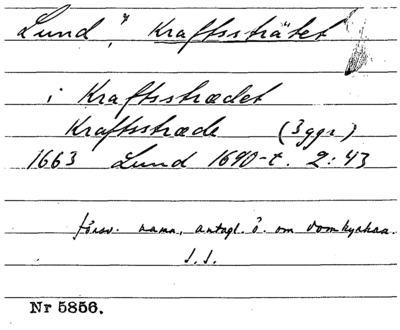 Lund, Kraftssträtet
i Kraftsstrædet
Kraftsstræde (3 ggr)
1663 Lund 1690-t. 2:43
försv. namn, antagl. ö. om domkyrkan.
S.S.
Nr 5856.